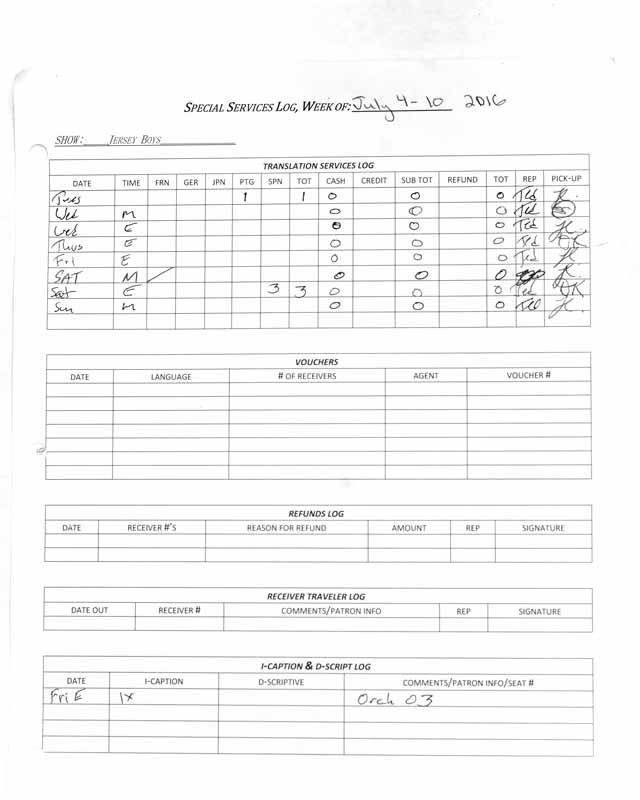 SPECIAL SERVICES LOG, WEEK OF: July 4-10 2016
SHOW: JERSEY BOYS
TRANSLATION SERVICES LOG
DATE TIME FRN GER JPN PTG SPN TOT CASH CREDIT SUB TOT REFUND TOT REP PICK-UP
Tues 1 1 0 0 0 Ted
Wed M 0 0 0 Ted
Wed E 0 0 0 Ted
Thus E 0 0 0 Ted DK
Fri E 0 0 0 Ted
SAT M 0 0 0
Sat E 3 3 0 0 0 Ted DK
Sun M 0 0 0 Ted
VOUCHERS
DATE LANGUAGE # OF RECEIVERS AGENT VOUCHER #
REFUNDS LOG
DATE RECEIVER #'S REASON FOR REFUND AMOUNT REP SIGNATURE
RECEIVER TRAVELER LOG
DATE OUT RECEIVER # COMMENTS/PATRON INFO REP SIGNATURE
I-CAPTION & D-SCRIPT LOG
DATE I-CAPTION D-SCRIPTIVE COMMENTS/PATRON INFO/SEAT #
Fri E 1x Orch O3